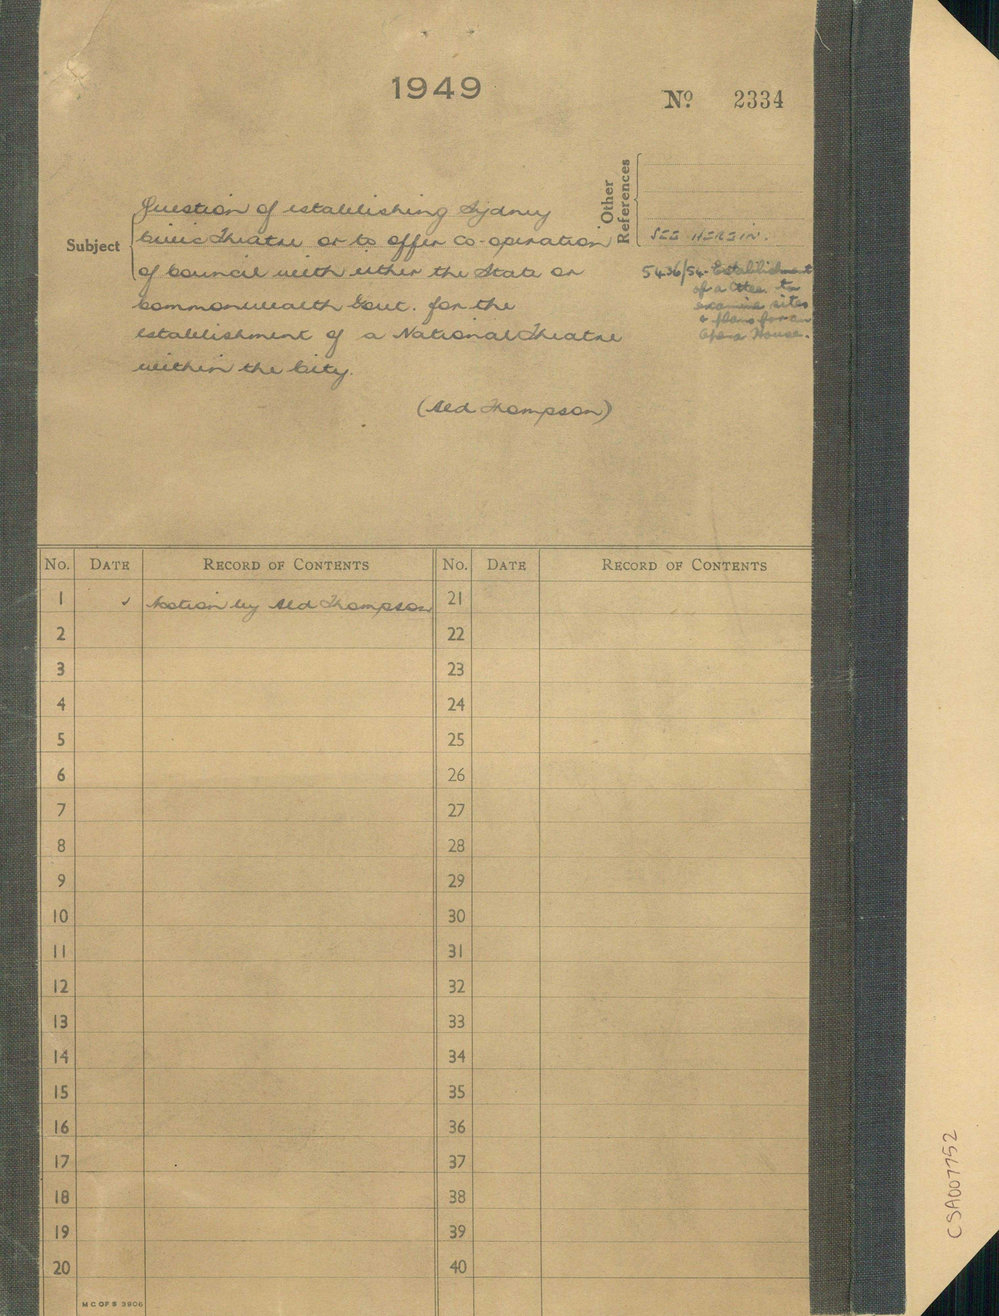 1949
No 2334
Other
References
SEE HEREIN.
5436/54. Establishment
of a Cttee. to
examine sites
& plans for an
Opera House.
Subject
Question of establishing Sydney
Civic Theatre or to offer co-operation
of Council with either the State or
Commonwealth Govt. for the
establishment of a National Theatre
within the City.
(Ald Thompson)
No. DATE RECORD OF CONTENTS No. DATE RECORD OF CONTENTS
1 ✓ Motion by Ald Thompson 21
2 22
3 23
4 24
5 25
6 26
7 27
8 28
9 29
10 30
11 31
12 32
13 33
14 34
15 35
16 36
17 37
18 38
19 39
20 40
M C OF S 3906
CSA007752